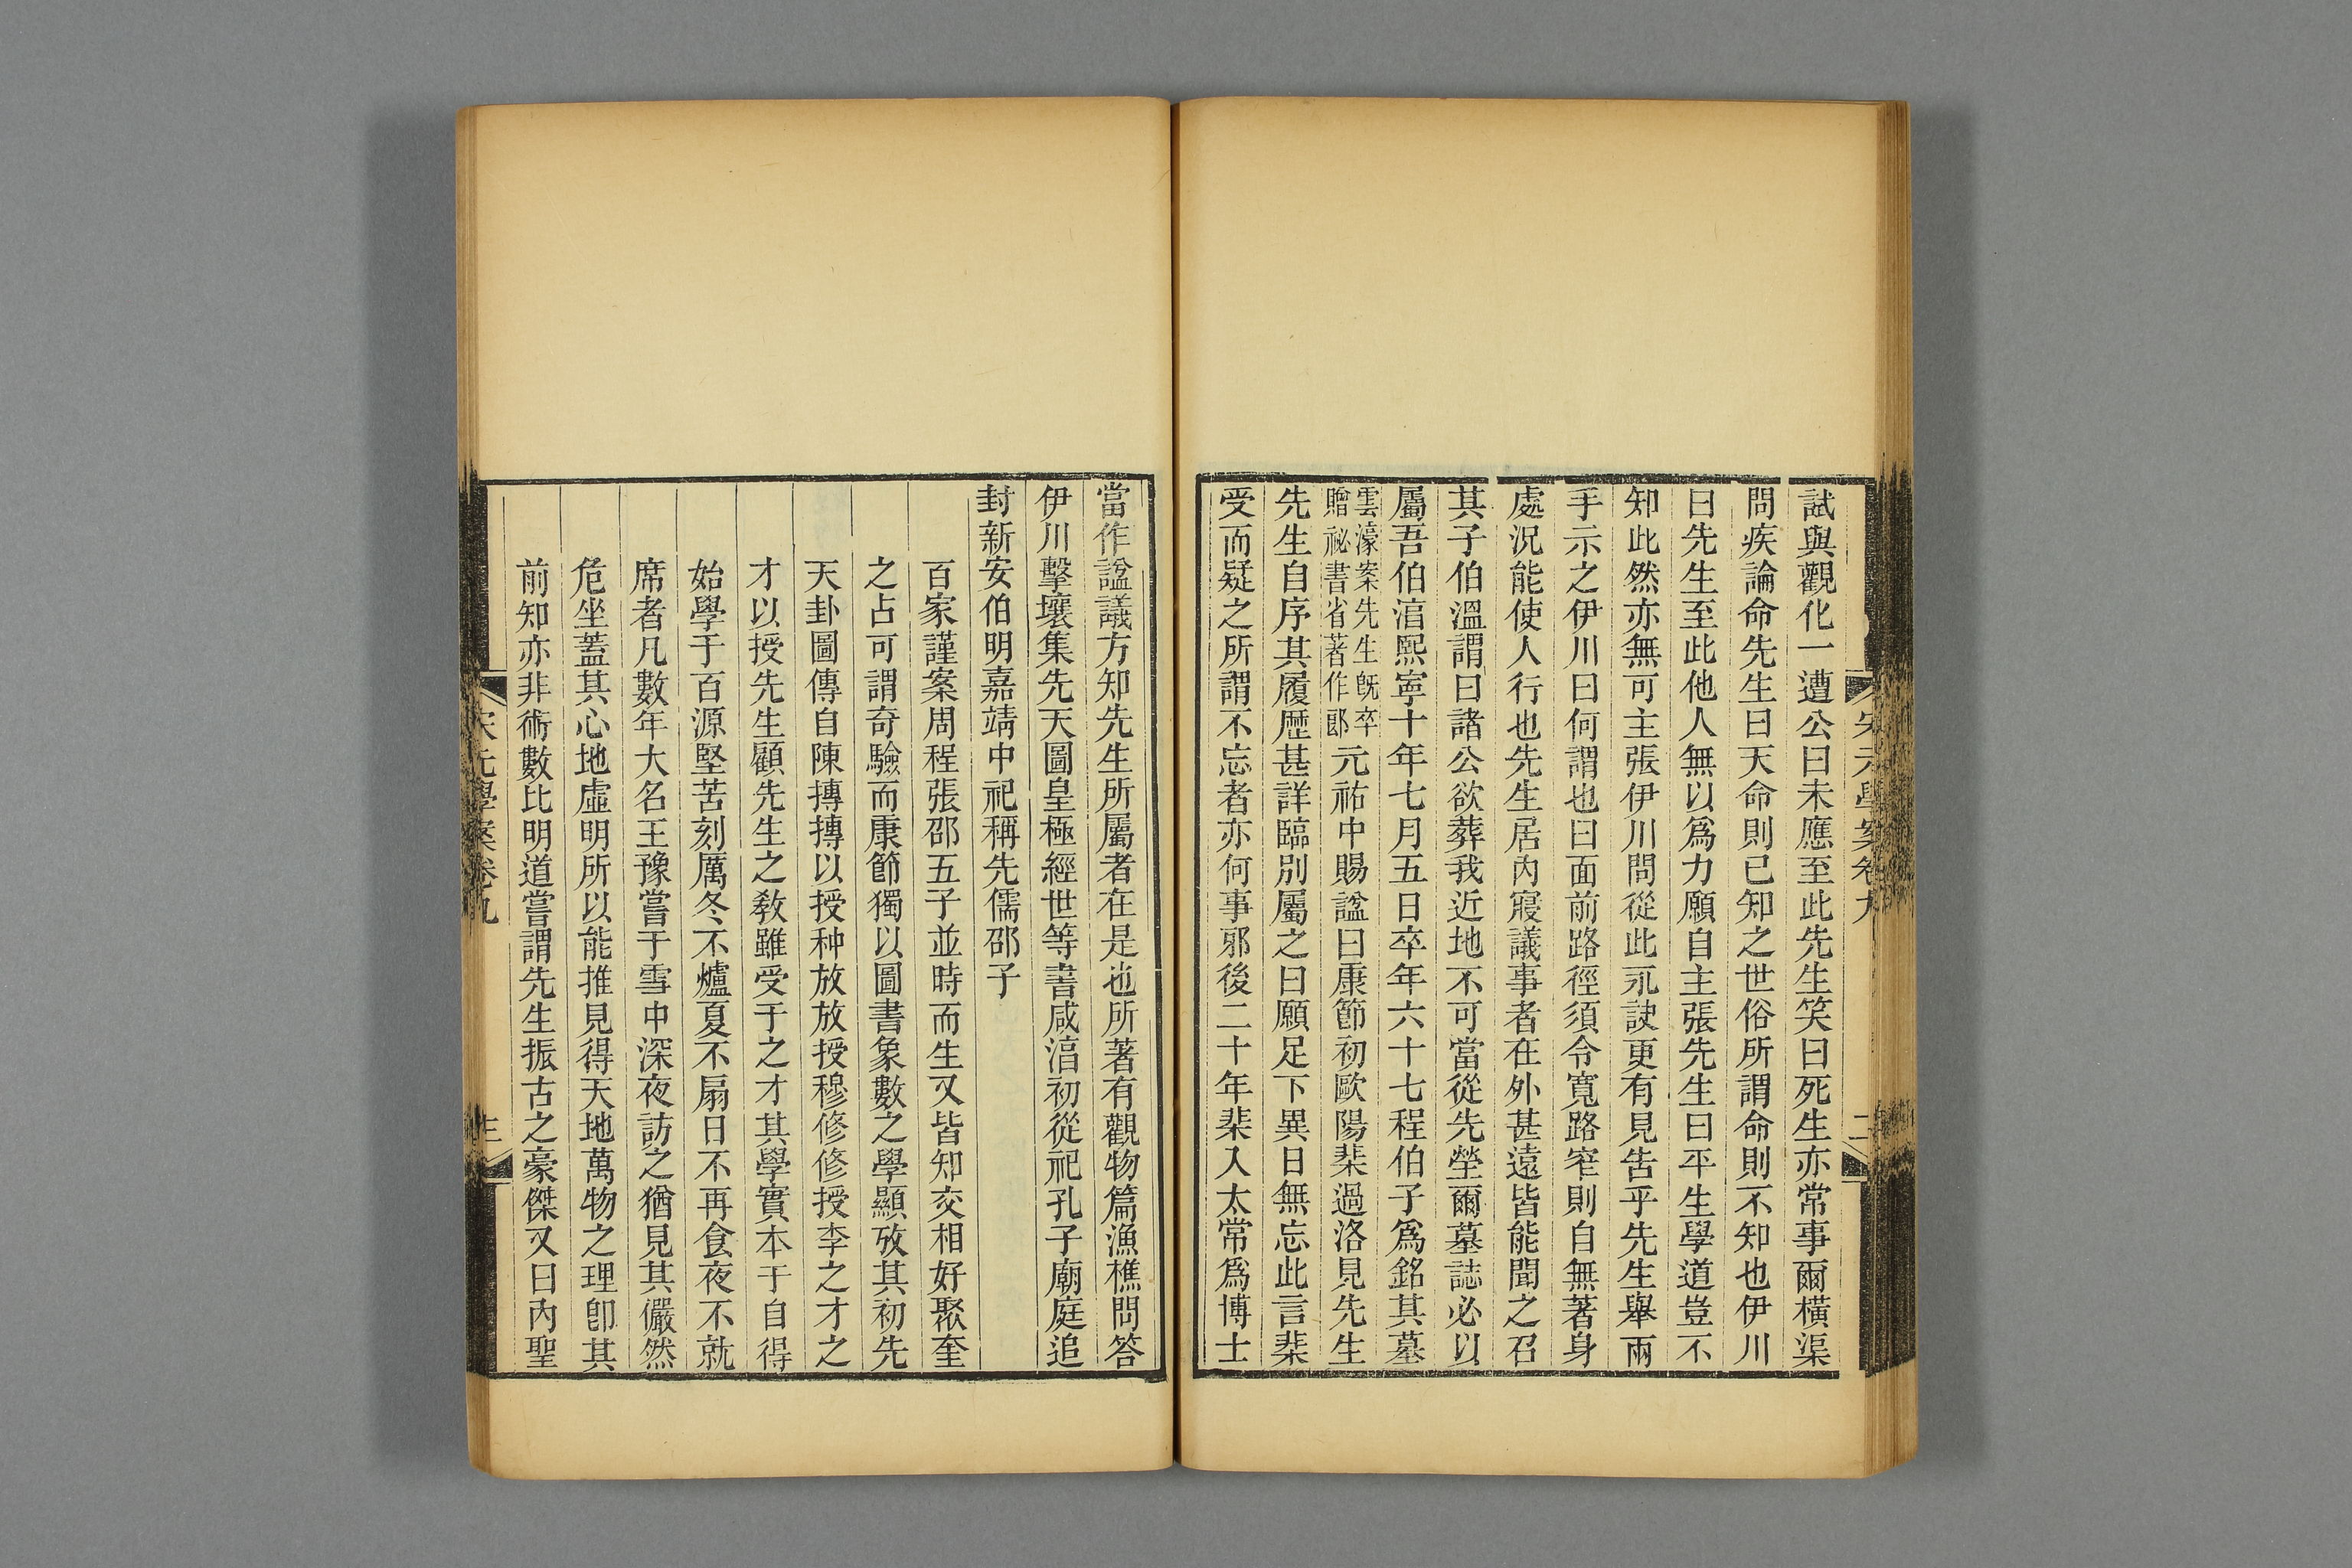 試與觀化一遭公曰未應至此先生笑曰死生亦常事爾橫渠
問疾論命先生曰天命則已知之世俗所謂命則不知也伊川
曰先生至此他人無以爲力願自主張先生曰平生學道豈不
知此然亦無可主張伊川問從此永訣更有見告乎先生舉兩
手示之伊川曰何謂也曰面前路徑須令寬路窄則自無著身
處況能使人行也先生居內寢議事者在外甚遠皆能聞之召
其子伯溫謂曰諸公欲葬我近地不可當從先塋爾墓誌必以
屬吾伯湻熙寧十年七月五日卒年六十七程伯子爲銘其墓
雲濠案先生旣卒
贈祕書省著作郎
元祐中賜諡曰康節初歐陽棐過洛見先生
先生自序其履歷甚詳臨別屬之曰願足下異日無忘此言棐
受而疑之所謂不忘者亦何事邪後二十年棐入太常爲博士
宋元學案卷九
二
當作諡議方知先生所屬者在是也所著有觀物篇漁樵問答
伊川擊壤集先天圖皇極經世等書咸湻初從祀孔子廟庭追
封新安伯明嘉靖中祀稱先儒邵子
百家謹案周程張邵五子並時而生又皆知交相好聚奎
之占可謂奇驗而康節獨以圖書象數之學顯攷其初先
天卦圖傳自陳摶摶以授种放放授穆修修授李之才之
才以授先生顧先生之敎雖受于之才其學實本于自得
始學于百源堅苦刻厲冬不爐夏不扇日不再食夜不就
席者凡數年大名王豫嘗于雪中深夜訪之猶見其儼然
危坐蓋其心地虛明所以能推見得天地萬物之理卽其
前知亦非術數比明道嘗謂先生振古之豪傑又曰內聖
宋元學案卷九
三